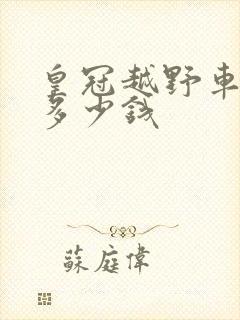 皇冠越野車
多少錢
蘇庭偉